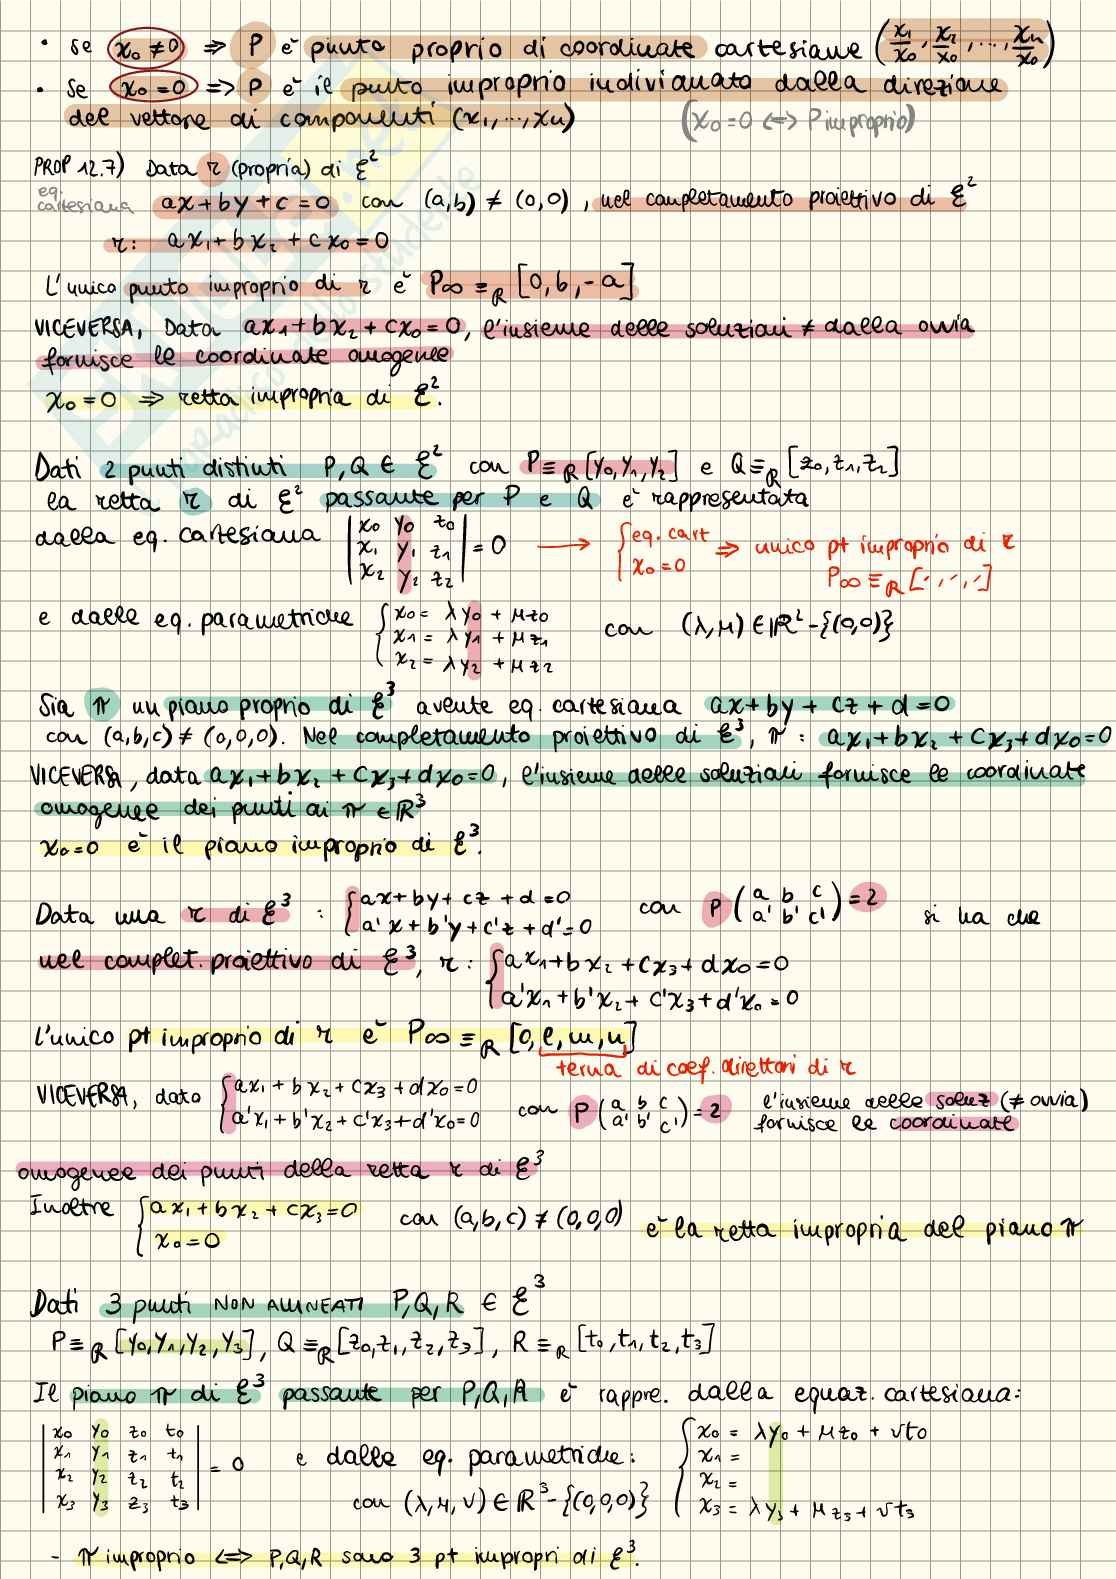 • se x₀ ≠ 0 ⇒ P è punto proprio di coordinate cartesiane (x₁/x₀, x₂/x₀, ..., xₙ/x₀)
• Se x₀ = 0 ⇒ P è il punto improprio individuato dalla direzione
del vettore di componenti (x₁, ..., xₙ) (x₀ = 0 ⟺ P improprio)
PROP 12.7) Data r (propria) di ℰ²
eq. cartesiana ax + by + c = 0 con (a,b) ≠ (0,0), nel completamento proiettivo di ℰ²
r: ax₁ + bx₂ + cx₀ = 0
L'unico punto improprio di r è P∞ ≡ᵣ [0, b, -a]
VICEVERSA, Data ax₁ + bx₂ + cx₀ = 0, l'insieme delle soluzioni ≠ dalla ovvia
fornisce le coordinate omogenee
x₀ = 0 ⇒ retta impropria di ℰ².
Dati 2 punti distinti P, Q ∈ ℰ² con P ≡ᵣ [y₀, y₁, y₂] e Q ≡ᵣ [z₀, z₁, z₂]
la retta r di ℰ² passante per P e Q è rappresentata
dalla eq. cartesiana | x₀ y₀ z₀ |
| x₁ y₁ z₁ | = 0 → { eq. cart ⇒ unico pt improprio di r
| x₂ y₂ z₂ | { x₀ = 0 P∞ ≡ᵣ [·, ·, ·]
e dalle eq. parametriche { x₀ = λy₀ + μz₀
{ x₁ = λy₁ + μz₁ con (λ,μ) ∈ ℝ² - {(0,0)}
{ x₂ = λy₂ + μz₂
Sia π un piano proprio di ℰ³ avente eq. cartesiana ax + by + cz + d = 0
con (a,b,c) ≠ (0,0,0). Nel completamento proiettivo di ℰ³, π: ax₁ + bx₂ + cx₃ + dx₀ = 0
VICEVERSA, data ax₁ + bx₂ + cx₃ + dx₀ = 0, l'insieme delle soluzioni fornisce le coordinate
omogenee dei punti di π ∈ ℝ³
x₀ = 0 è il piano improprio di ℰ³.
Data una r di ℰ³ : { ax + by + cz + d = 0 con ρ (a b c) = 2 si ha che
{ a'x + b'y + c'z + d' = 0 (a' b' c')
nel complet. proiettivo di ℰ³, r: { ax₁ + bx₂ + cx₃ + dx₀ = 0
{ a'x₁ + b'x₂ + c'x₃ + d'x₀ = 0
L'unico pt improprio di r è P∞ ≡ᵣ [0, l, m, n]
terna di coef. direttori di r
VICEVERSA, dato { ax₁ + bx₂ + cx₃ + dx₀ = 0 con ρ (a b c) = 2 l'insieme delle soluz (≠ ovvia)
{ a'x₁ + b'x₂ + c'x₃ + d'x₀ = 0 (a' b' c') fornisce le coordinate
omogenee dei punti della retta r di ℰ³
Inoltre { ax₁ + bx₂ + cx₃ = 0 con (a,b,c) ≠ (0,0,0) è la retta impropria del piano π
{ x₀ = 0
Dati 3 punti NON ALLINEATI P, Q, R ∈ ℰ³
P ≡ᵣ [y₀, y₁, y₂, y₃], Q ≡ᵣ [z₀, z₁, z₂, z₃], R ≡ᵣ [t₀, t₁, t₂, t₃]
Il piano π di ℰ³ passante per P, Q, R è rappre. dalla equaz. cartesiana:
| x₀ y₀ z₀ t₀ | { x₀ = λy₀ + μz₀ + νt₀
| x₁ y₁ z₁ t₁ | = 0 e dalle eq. parametriche: { x₁ =
| x₂ y₂ z₂ t₂ | { x₂ =
| x₃ y₃ z₃ t₃ | con (λ,μ,ν) ∈ ℝ³ - {(0,0,0)} { x₃ = λy₃ + μz₃ + νt₃
- π improprio ⟺ P, Q, R sono 3 pt impropri di ℰ³.